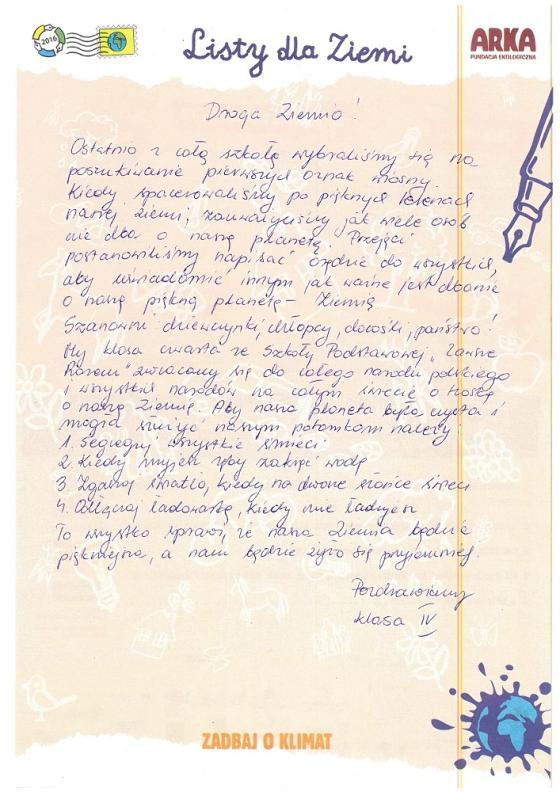 2016
Listy dla Ziemi
ARKA
FUNDACJA EKOLOGICZNA
Droga Ziemio!
Ostatnio z całą szkołą wybraliśmy się na
poszukiwanie pierwszych oznak wiosny.
Kiedy spacerowaliśmy po pięknych terenach
naszej ziemi, zauważyliśmy jak wiele osób
nie dba o naszą planetę. Przejęci
postanowiliśmy napisać orędzie do wszystkich,
aby uświadomić innym jak ważne jest dbanie
o naszą piękną planetę - Ziemię
Szanowni dziewczynki, chłopcy, dorośli, państwo!
My klasa czwarta ze Szkoły Podstawowej "Zawsze
Razem" zwracamy się do całego narodu polskiego
i wszystkich narodów na całym świecie o troskę
o naszą Ziemię. Aby nasza planeta była czysta i
mogła służyć naszym potomkom należy:
1. Segreguj wszystkie śmieci
2. Kiedy myjesz zęby zakręć wodę
3. Zgaszaj światło, kiedy na dworze słońce świeci
4. Odłączaj ładowarkę, kiedy nie ładujesz
To wszystko sprawi, że nasza Ziemia będzie
piękniejsza, a nam będzie żyło się przyjemniej.
Pozdrawiamy
klasa IV
ZADBAJ O KLIMAT